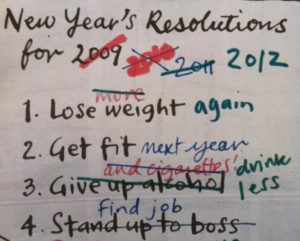 New Year's Resolutions
for 2009 2011 2012
more
1. Lose weight again
2. Get fit next year
and cigarettes!
3. Give up alcohol drink less
find job
4. Stand up to boss